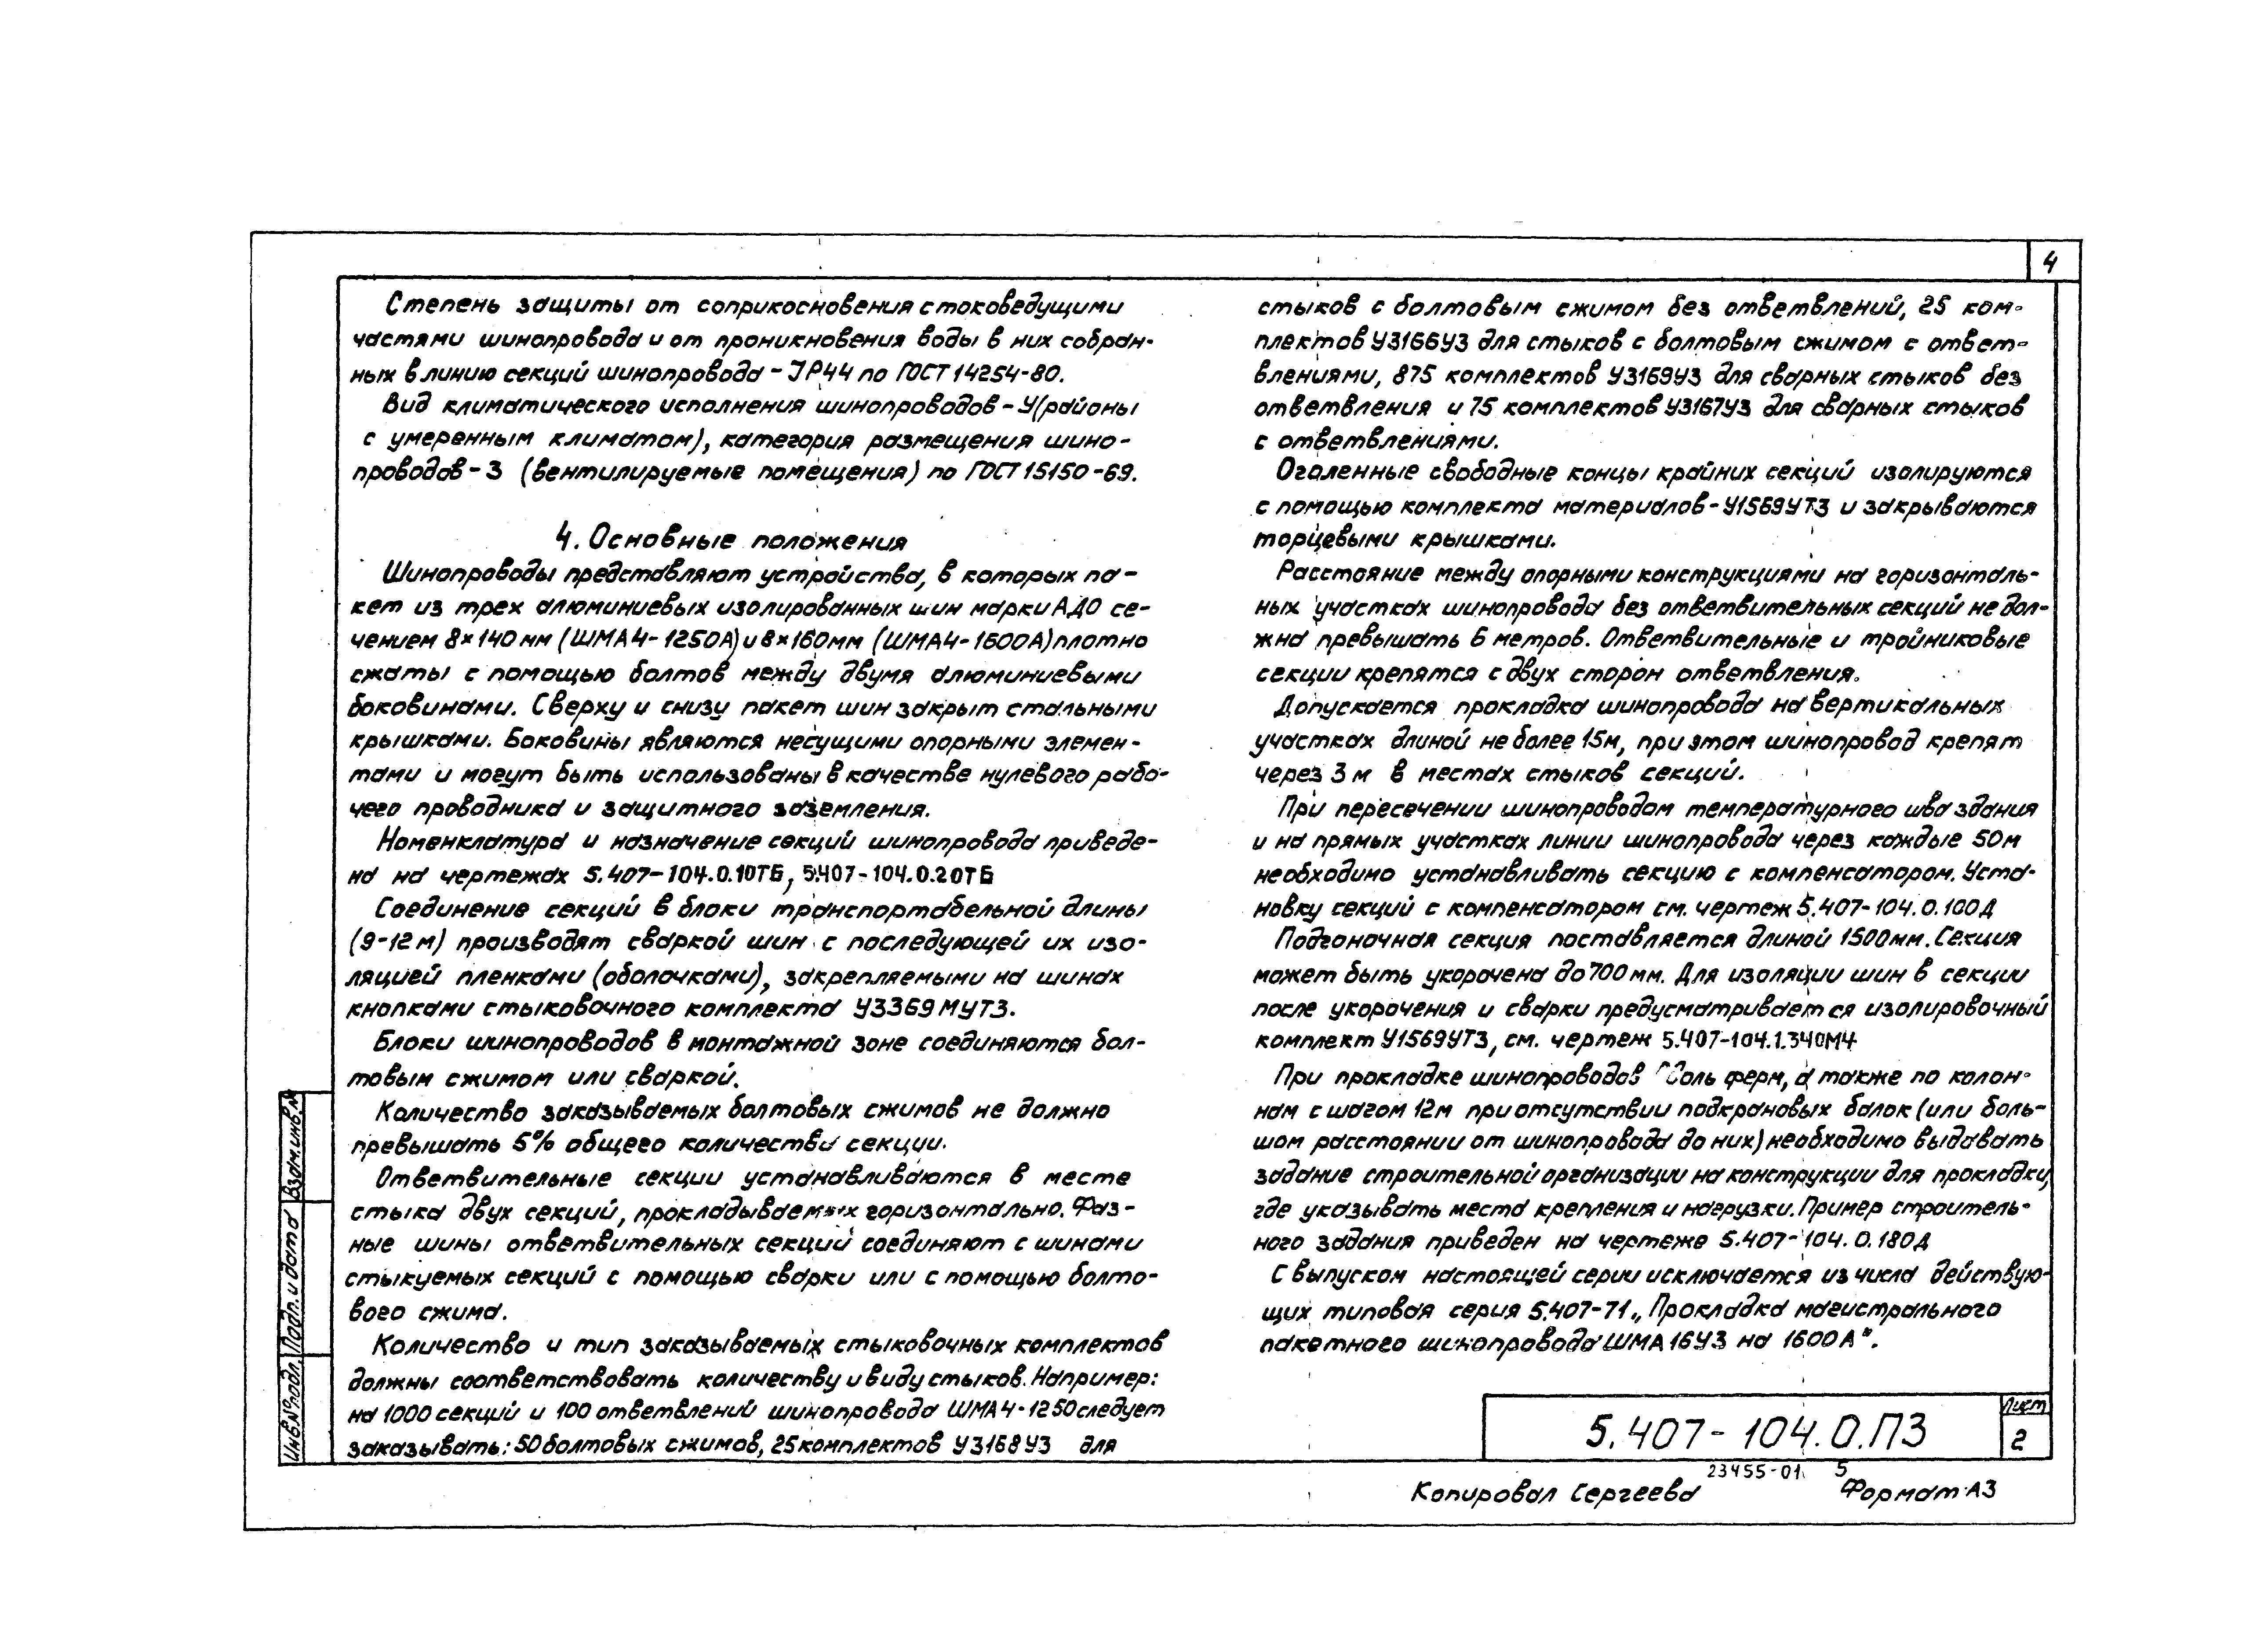 4
Степень защиты от соприкосновения с токоведущими
частями шинопровода и от проникновения воды в них собран-
ных в линию секций шинопровода - JP44 по ГОСТ 14254-80.
Вид климатического исполнения шинопроводов - У(районы
с умеренным климатом), категория размещения шино-
проводов - 3 (вентилируемые помещения) по ГОСТ 15150-69.
4. Основные положения
Шинопроводы представляют устройства, в которых па-
кет из трех алюминиевых изолированных шин марки АДО се-
чением 8×140 мм (ШМА4-1250А) и 8×160мм (ШМА4-1600А) плотно
сжаты с помощью болтов между двумя алюминиевыми
боковинами. Сверху и снизу пакет шин закрыт стальными
крышками. Боковины являются несущими опорными элемен-
тами и могут быть использованы в качестве нулевого рабо-
чего проводника и защитного заземления.
Номенклатура и назначение секций шинопровода приведе-
на на чертежах 5.407-104.0.10ТБ, 5.407-104.0.20ТБ
Соединение секций в блоки транспортабельной длины
(9-12 м) производят сваркой шин с последующей их изо-
ляцией пленками (оболочками), закрепляемыми на шинах
кнопками стыковочного комплекта У3369МУТ3.
Блоки шинопроводов в монтажной зоне соединяются бол-
товым сжимом или сваркой.
Количество заказываемых болтовых сжимов не должно
превышать 5% общего количества секции.
Ответвительные секции устанавливаются в месте
стыка двух секций, прокладываемых горизонтально. Фаз-
ные шины ответвительных секций соединяют с шинами
стыкуемых секций с помощью сварки или с помощью болто-
вого сжима.
Количество и тип заказываемых стыковочных комплектов
должны соответствовать количеству и виду стыков. Например:
на 1000 секций и 100 ответвлений шинопровода ШМА4-1250 следует
заказывать: 50 болтовых сжимов, 25 комплектов У3168У3 для
стыков с болтовым сжимом без ответвлений, 25 ком-
плектов У3166У3 для стыков с болтовым сжимом с ответ-
влениями, 875 комплектов У3169У3 для сварных стыков без
ответвления и 75 комплектов У3167У3 для сварных стыков
с ответвлениями.
Оголенные свободные концы крайних секций изолируются
с помощью комплекта материалов - У1569УТ3 и закрываются
торцевыми крышками.
Расстояние между опорными конструкциями на горизонталь-
ных участках шинопровода без ответвительных секций не дол-
жна превышать 6 метров. Ответвительные и тройниковые
секции крепятся с двух сторон ответвления.
Допускается прокладка шинопровода на вертикальных
участках длиной не более 15м, при этом шинопровод крепят
через 3 м в местах стыков секций.
При пересечении шинопроводом температурного шва здания
и на прямых участках линии шинопровода через каждые 50 м
необходимо устанавливать секцию с компенсатором. Уста-
новку секций с компенсатором см. чертеж 5.407-104.0.100Д
Подгоночная секция поставляется длиной 1500мм. Секция
может быть укорочена до 700 мм. Для изоляции шин в секции
после укорочения и сварки предусматривается изолировочный
комплект У1569УТ3, см. чертеж 5.407-104.1.340МЧ
При прокладке шинопроводов вдоль ферм, а также по колон-
нам с шагом 12м при отсутствии подкрановых балок (или боль-
шом расстоянии от шинопровода до них) необходимо выдавать
задание строительной организации на конструкции для прокладки,
где указывать места крепления и нагрузки. Пример строитель-
ного задания приведен на чертеже 5.407-104.0.180Д
С выпуском настоящей серии исключается из числа действую-
щих типовая серия 5.407-71 „Прокладка магистрального
пакетного шинопровода ШМА 16У3 на 1600 А".
Взам.инв.№
Подп. и дата
Инв.№подл.
5.407-104.0.ПЗ
Лист
2
23455-01 5
Копировал Сергеева Формат А3